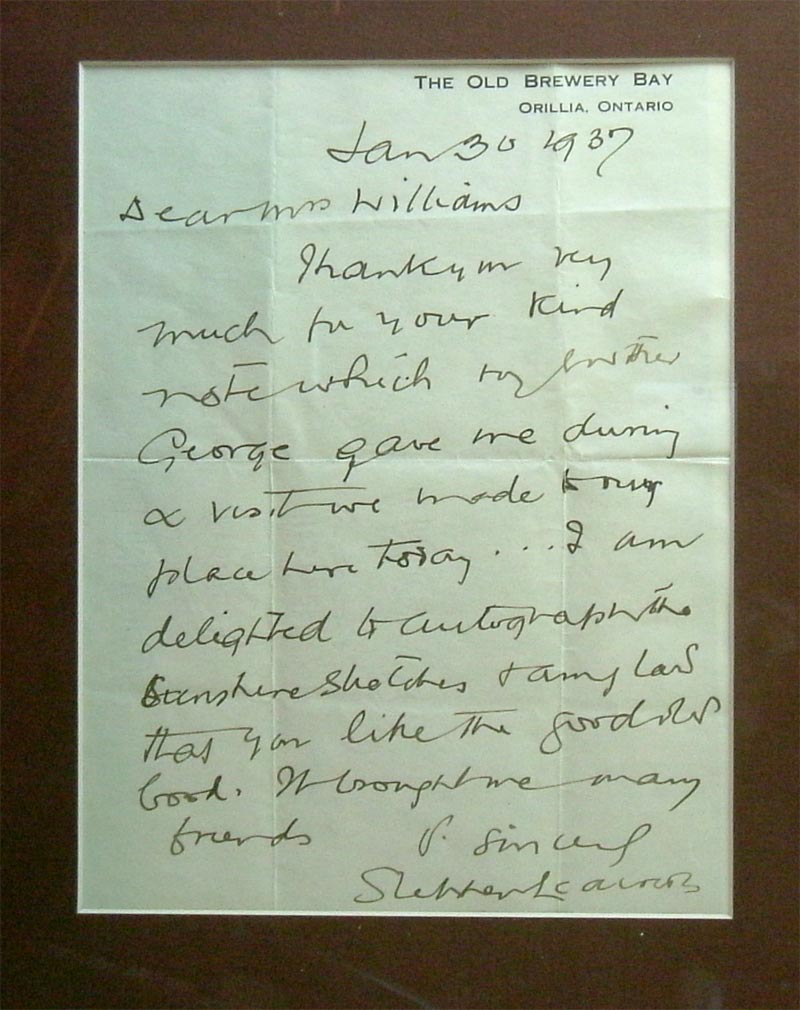 THE OLD BREWERY BAY
ORILLIA, ONTARIO
Jan 30 1937
Dear Mrs Williams
Thank you very
much for your kind
note which my brother
George gave me during
a visit we made to my
place here today . . . . I am
delighted to autograph the
Sunshine Sketches & am glad
that you like the good old
book. It brought me many
friends
V. Sincerely
Stephen Leacock